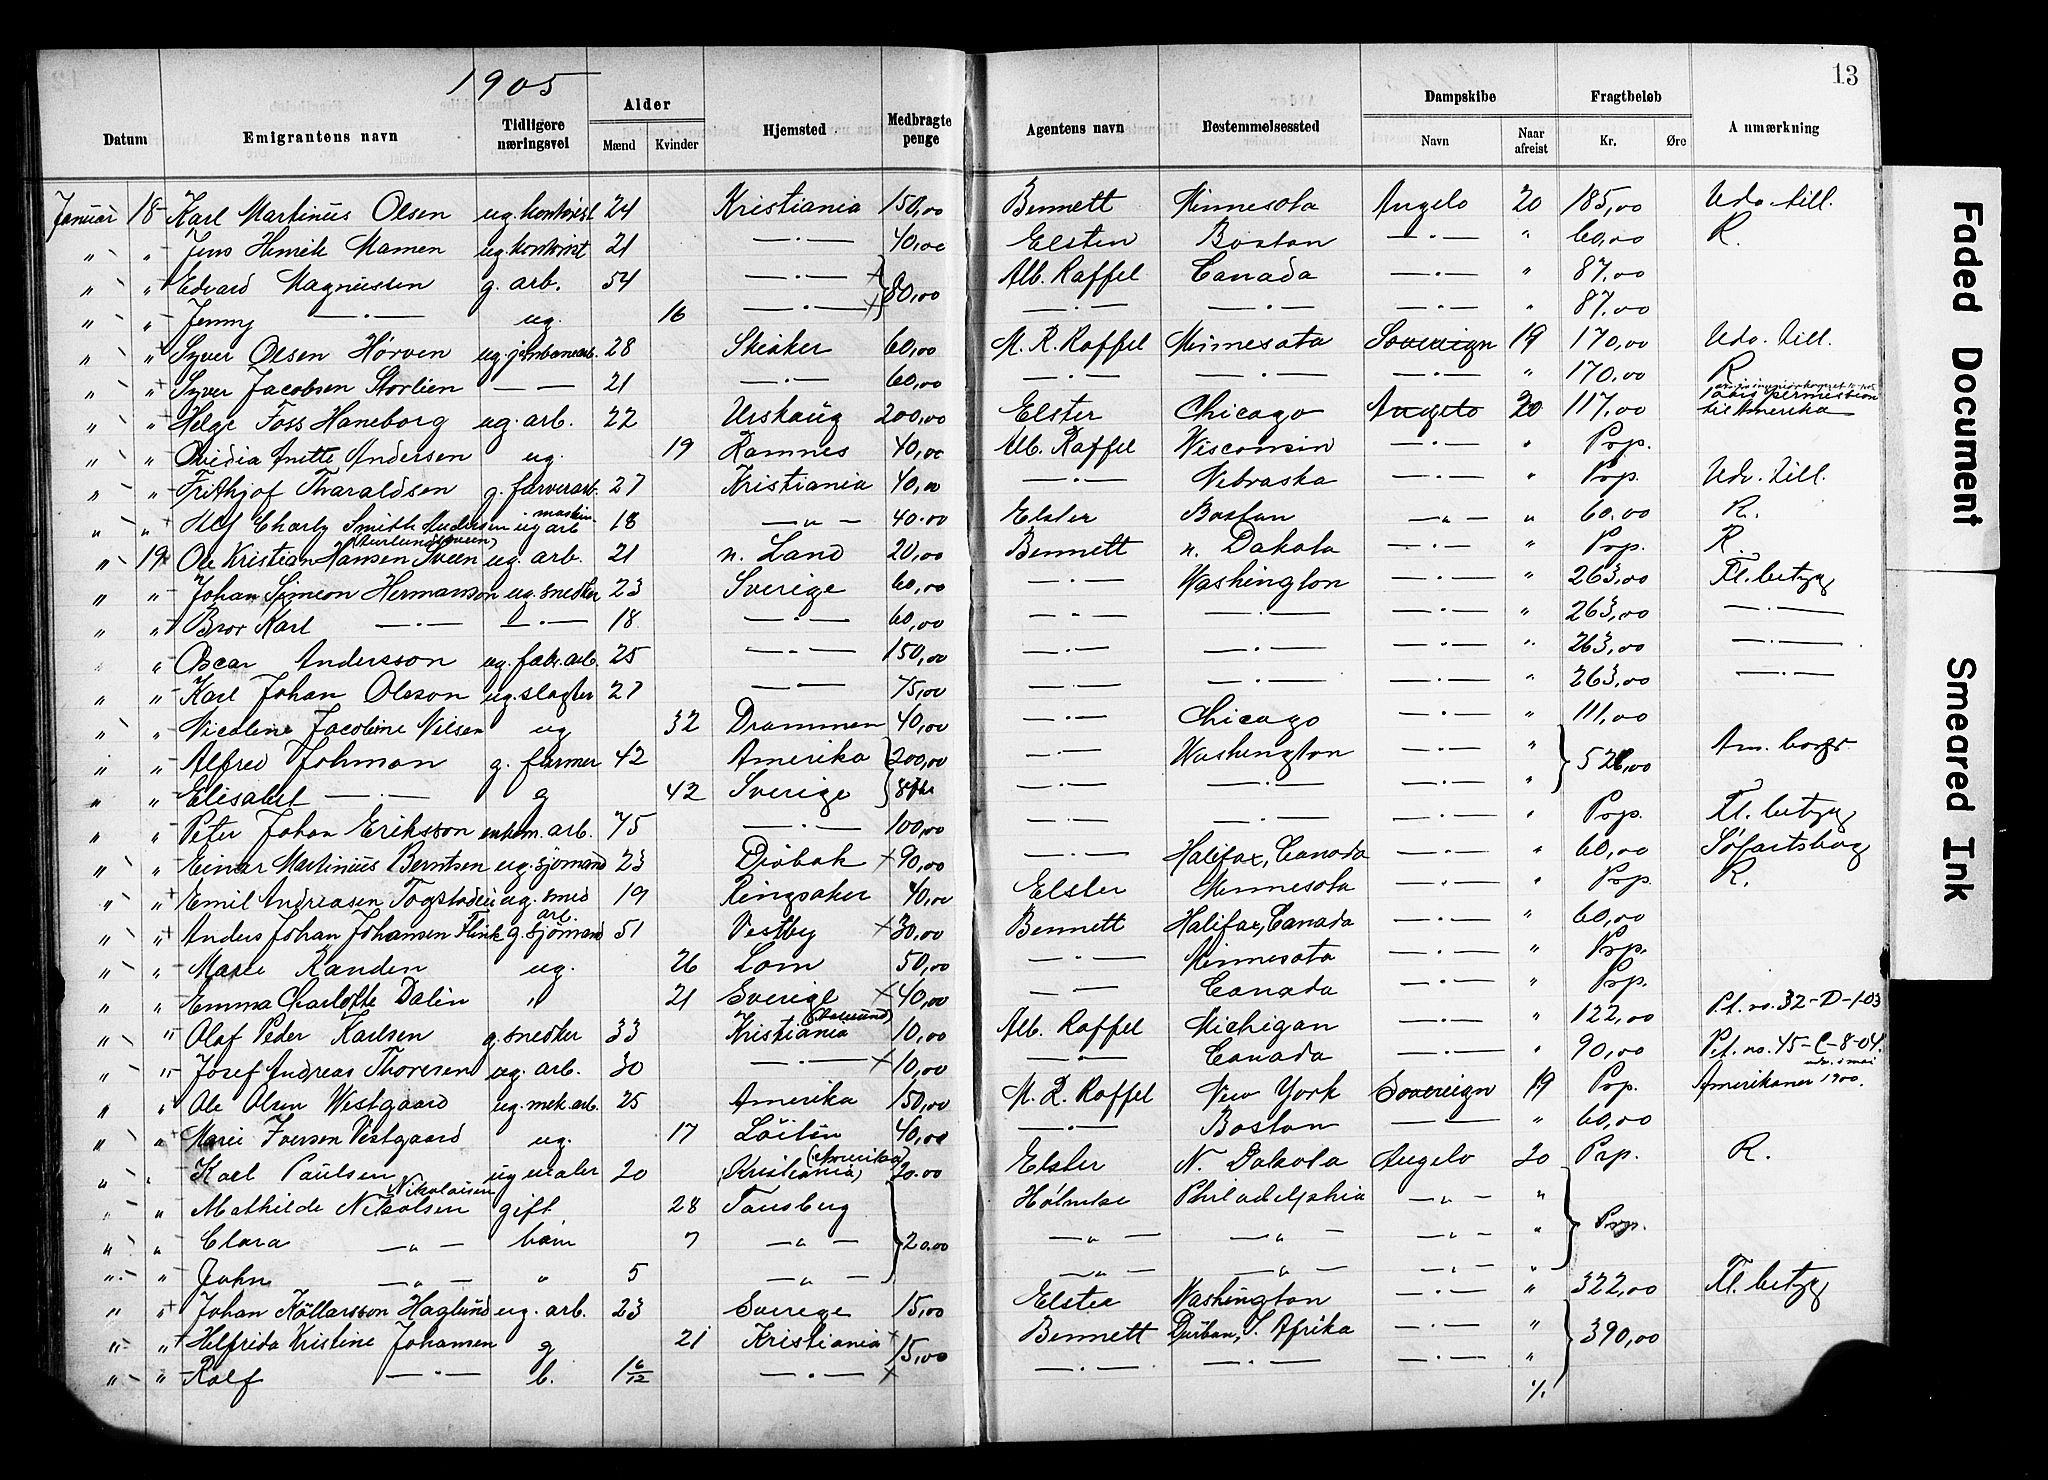 1905
13
Datum | Emigrantens navn | Tidligere næringsvei | Alder Mænd | Kvinder | Hjemsted | Medbragte penge | Agentens navn | Bestemmelsessted | Dampskibe Navn | Naar afreist | Fragtbeløb Kr. | Øre | Anmærkning
Januar 18 Karl Martinus Olsen ug. kontorist 24 Kristiania 150,00 Bennett Minnesota Angelo 20 185,00 Udv. till.
" " Jens Henrik Mamen ug. kontorist 21 — · — 40,00 Elsten Boston — · — " 60,00 R.
" " Edvard Magnussen g. arb. 54 — · — 80,00 Alb. Raffel Canada — · — " 87,00
" " Jenny — · — ug. 16 — · — — · — — · — — · — " 87,00
" " Syver Olsen Hørven ug. jernbanearb. 28 Skiaker 60,00 M. R. Raffel Minnesota Sovereign 19 170,00 Udv. till.
" " Syver Jacobsen Storlien — — 21 — · — 60,00 — · — — · — — · — " 170,00 R
" " Helge Foss Haneborg ug. arb. 22 Urskaug 200,00 Elster Chicago Angelo 20 117,00 1 aars permission til Amerika
" " Ovidia Anette Andersen ug. 19 Ramnes 40,00 Alb. Raffel Wisconsin — · — " Prp.
" " Frithjof Tharaldsen g. farverarb. 27 Kristiania 40,00 — · — Nebraska — · — " Prp. Udv. till.
" " Alf Charly Smith Andersen ug. maskin arb 18 — " — 40.00 Elster Boston — " — " 60.00 R.
" 19 Ole Kristian Hansen Sveen ug. arb. 21 n. Land 20,00 Bennett n. Dakota — · — " Prp. R.
" " Johan Simeon Hermanson ug. snedker 23 Sverige 60,00 — · — Washington — · — " 263,00 Fl. betyg
" " Bror Karl — · — — · — 18 — · — 60,00 — · — — · — — · — " 263,00 — · —
" " Oscar Andersson ug. fabr. arb. 25 — · — 150,00 — · — — · — — · — " 263,00 — · —
" " Karl Johan Olsson ug. slagter 27 — · — 75,00 — · — — · — — · — " 263,00 — · —
" " Nicoline Jacobine Nilsen ug 32 Drammen 40,00 — · — Chicago — · — " 111,00
" " Alfred Johnson g. farmer 42 Amerika 200,00 — · — Washington — · — " 526,00 Am. borger
" " Elisabet — · — g 42 Sverige — · — — · — — · — "
" " Peter Johan Eriksson enkem. arb. 75 — · — 100,00 — · — — · — — · — " Prp. Fl. betyg
" " Einar Martinius Berntsen ug. sjømand 23 Drøbak 90,00 — · — Halifax, Canada — · — " 60,00 Søfartsbog
" " Emil Andreasen Togstadlie ug. smed 19 Ringsaker 40,00 Elster Minnesota — · — " Prp. R.
" " Anders Johan Johansen Flink g. arb. sjømand 51 Vestby 30,00 Bennett Halifax, Canada — · — " 60,00
" " Marie Randen ug. 26 Lom 50,00 — · — Minnesota — · — " Prp.
" " Emma Charlotte Dalin " 21 Sverige 40,00 — · — Canada — · — " Prp.
" " Olaf Peder Karlsen g. snedker 33 Kristiania 10,00 Alb. Raffel Michigan — · — " 122,00 Pt. no. 32-D-1-03
" " Josef Andreas Thoresen ug. arb. 30 — · — 10,00 — · — Canada — · — " 90,00 Pt. no. 45-C-8-04.
" " Ole Olsen Westgaard ug. mek. arb. 25 Amerika 150,00 M. R. Raffel New York Sovereign 19 Prp. Amerikaner udv. i mai 1900.
" " Marie Iversen Vestgaard ug. 17 Löiten 40,00 — · — Boston — — " 60,00
" " Karl Paulsen ug maler 20 (Kristiania) (Amerika) 20.00 Elster N. Dakota Angelo 20 Prp. R.
" " Mathilde Nikolsen Nikolaisen gift 28 Tønsberg 20.00 Holmtse Philadelphia — " — " Prp.
" " Clara — " — barn 7 — " — — " — — " — — " — "
" " John — " — " 5 — " — — " — — " — — " — "
" " Johan Källarsson Haglund ug. arb. 23 Sverige 15,00 Elster Washington — · — " 322,00 Fl. betyg
" " Helfrida Kristine Johansen g 21 Kristiania 15,00 Bennett Durban, S. Afrika — · — " 390,00
" " Rolf — · — b. 1 6/12 — · — — · — — · — — · — "
Faded Document
Smeared Ink